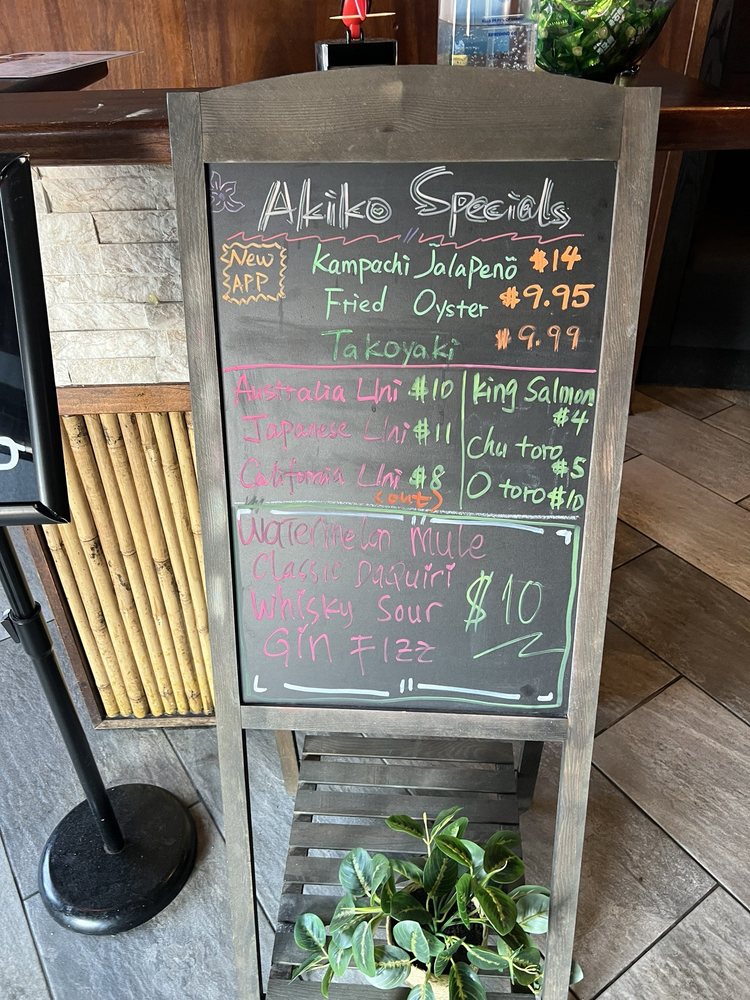 Akiko Specials
New
APP
Kampachi Jalapenõ $14
Fried Oyster $9.95
Takoyaki $9.99
Australia Uni $10
Japanese Uni $11
California Uni $8
(out)
King Salmon
$4
Chu toro
$5
O toro $10
Watermelon Mule
Classic Daquiri
Whisky Sour
Gin Fizz
$10